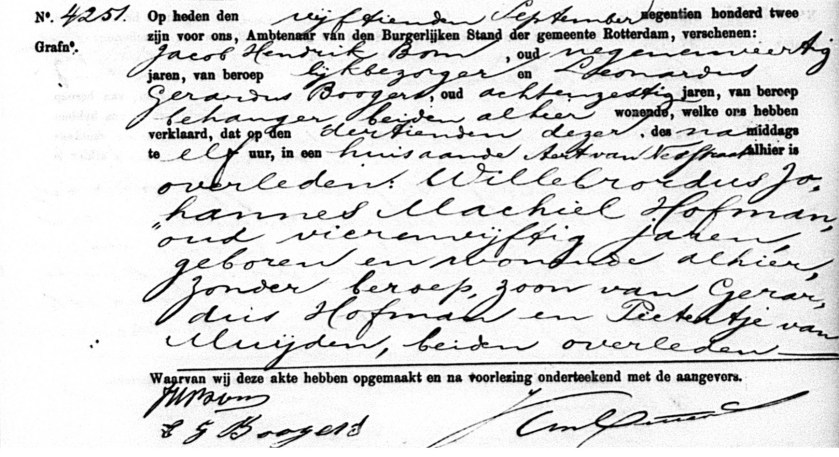 Nº. 4251. Op heden den vijftienden September negentien honderd twee
Grafnº. zijn voor ons, Ambtenaar van den Burgerlijken Stand der gemeente Rotterdam, verschenen:
Jacob Hendrik Bom, oud negenenveertig
jaren, van beroep lijkbezorger en Leonardus
Gerardus Boogerd, oud achtenzestig jaren, van beroep
behanger, beiden alhier wonende, welke ons hebben
verklaard, dat op den dertienden dezer, des namiddags
te elf uur, in een huis aan de Aert van Nesstraat alhier is
overleden: Willebrordus Jo-
hannes Machiel Hofman,
oud vierenvijftig jaren,
geboren en wonende alhier,
zonder beroep, zoon van Gerar-
dus Hofman en Pietertje van
Muijden, beiden overleden
Waarvan wij deze akte hebben opgemaakt en na voorlezing onderteekend met de aangevers.
JHBom
L G Boogerd